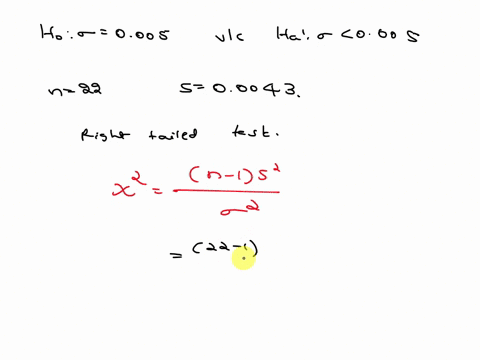 H₀: σ = 0.005 v/c Ha: σ < 0.005
n = 22 s = 0.0043.
Right tailed test.
x² = (n-1) s² / σ²
= (22-1)